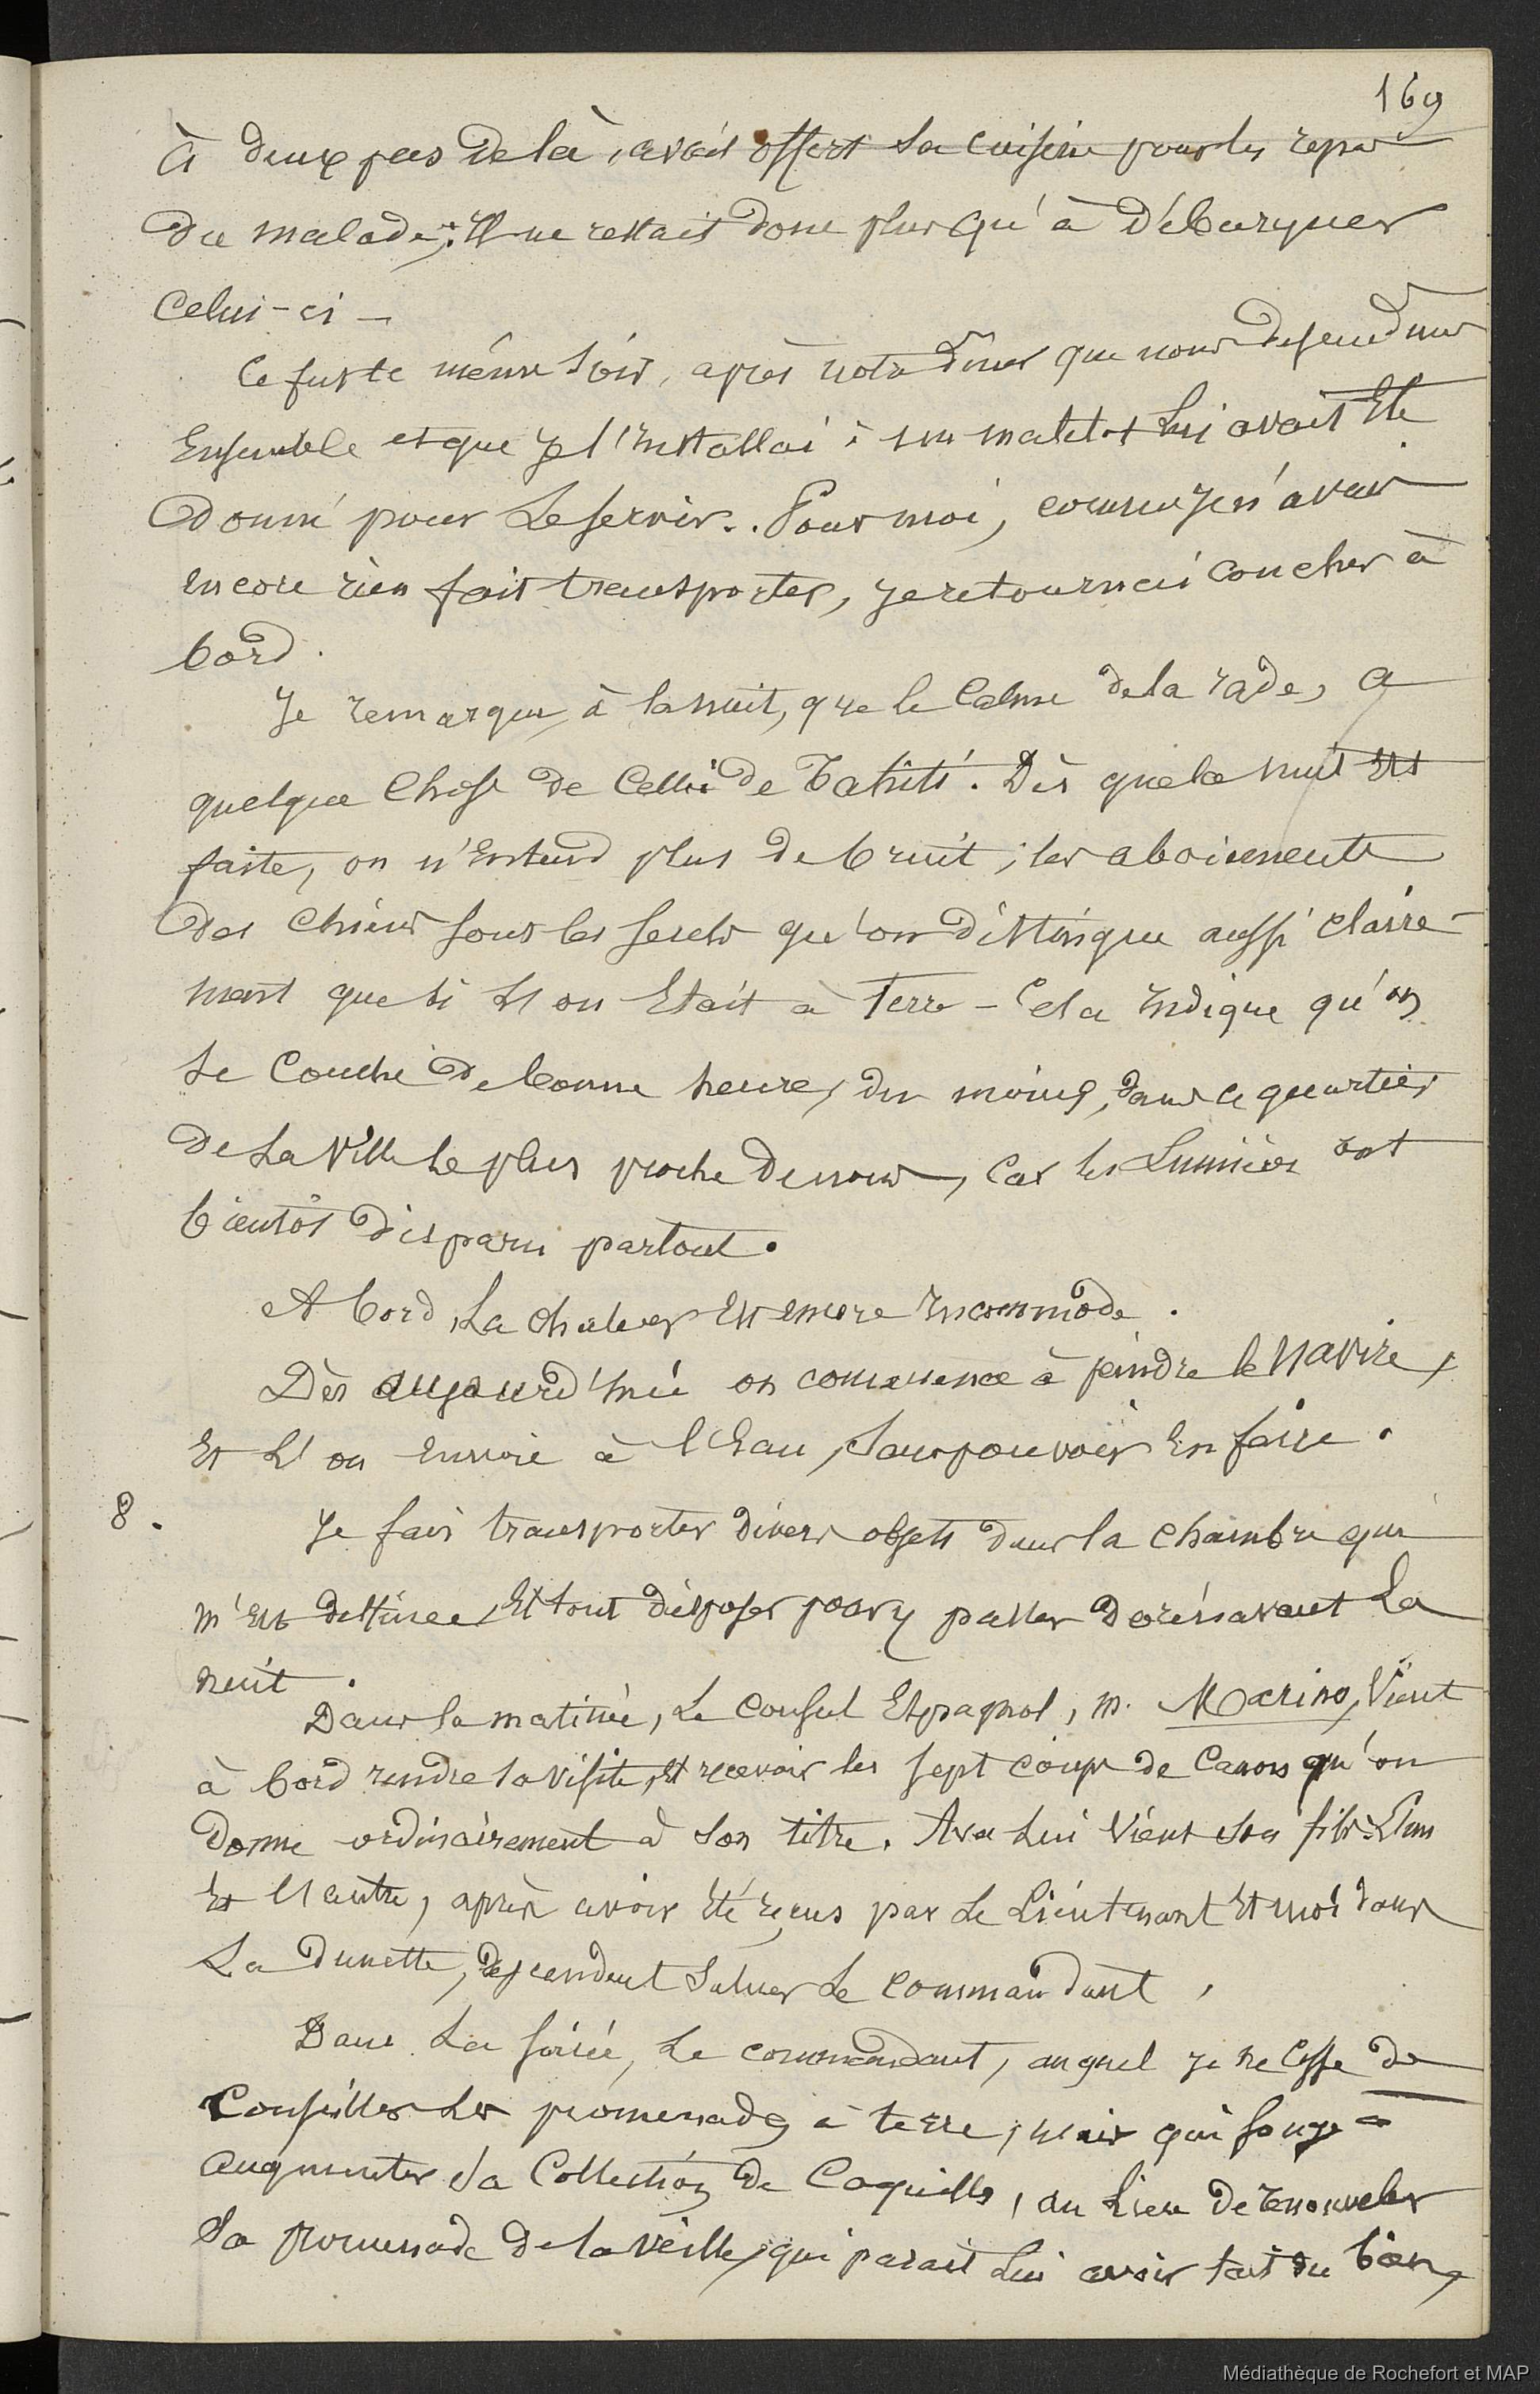 169
à deux pas de là, avait offert sa cuisine pour les repas
du malade; Il ne restait donc plus qu'à débarquer
celui-ci —
Ce fut le même soir, après notre dîner que nous descendîmes
Ensemble et que je l'Installai : un matelot lui avait Eté
donné pour le servir. Pour moi, comme je n'avais
encore rien fait transporter, je retournai coucher à
bord.
Je remarque, à la nuit, que le calme de la rade, a
quelque chose de celui de Tahiti. Dès que la nuit Est
faite, on n'Entend plus de bruit ; les aboiements
des chiens sont les seuls qu'on distingue aussi claire-
ment que si l'on Etait à Terre — Cela Indique qu'on
se couche de bonne heure, du moins, dans ce quartier
de la ville le plus proche de nous, car les lumières ont
bientôt disparu partout.
A bord, la chaleur Est encore Incommode.
Dès aujourd'hui on commence à peindre le navire,
Et l'on envoie à l'Eau, sans pouvoir En faire.
8.
Je fais transporter divers objets dans la chambre qui
m'Est destinée, Et tout disposer pour y passer dorénavant la
nuit.
Dans la matinée, le consul Espagnol, M. Marino, vient
à bord rendre sa visite, Et recevoir les sept coups de canon qu'on
donne ordinairement à son titre. Avec lui vient son fils. L'un
Et l'autre, après avoir Eté reçus par le Lieutenant Et moi dans
la dunette, descendent saluer le commandant,
Dans la soirée, le commandant, auquel je ne cesse de
conseiller les promenades à terre, mais qui songe à
augmenter sa collection de coquilles, au lieu de renouveler
sa promenade de la veille, qui parait lui avoir fait du bien,
Médiathèque de Rochefort et MAP